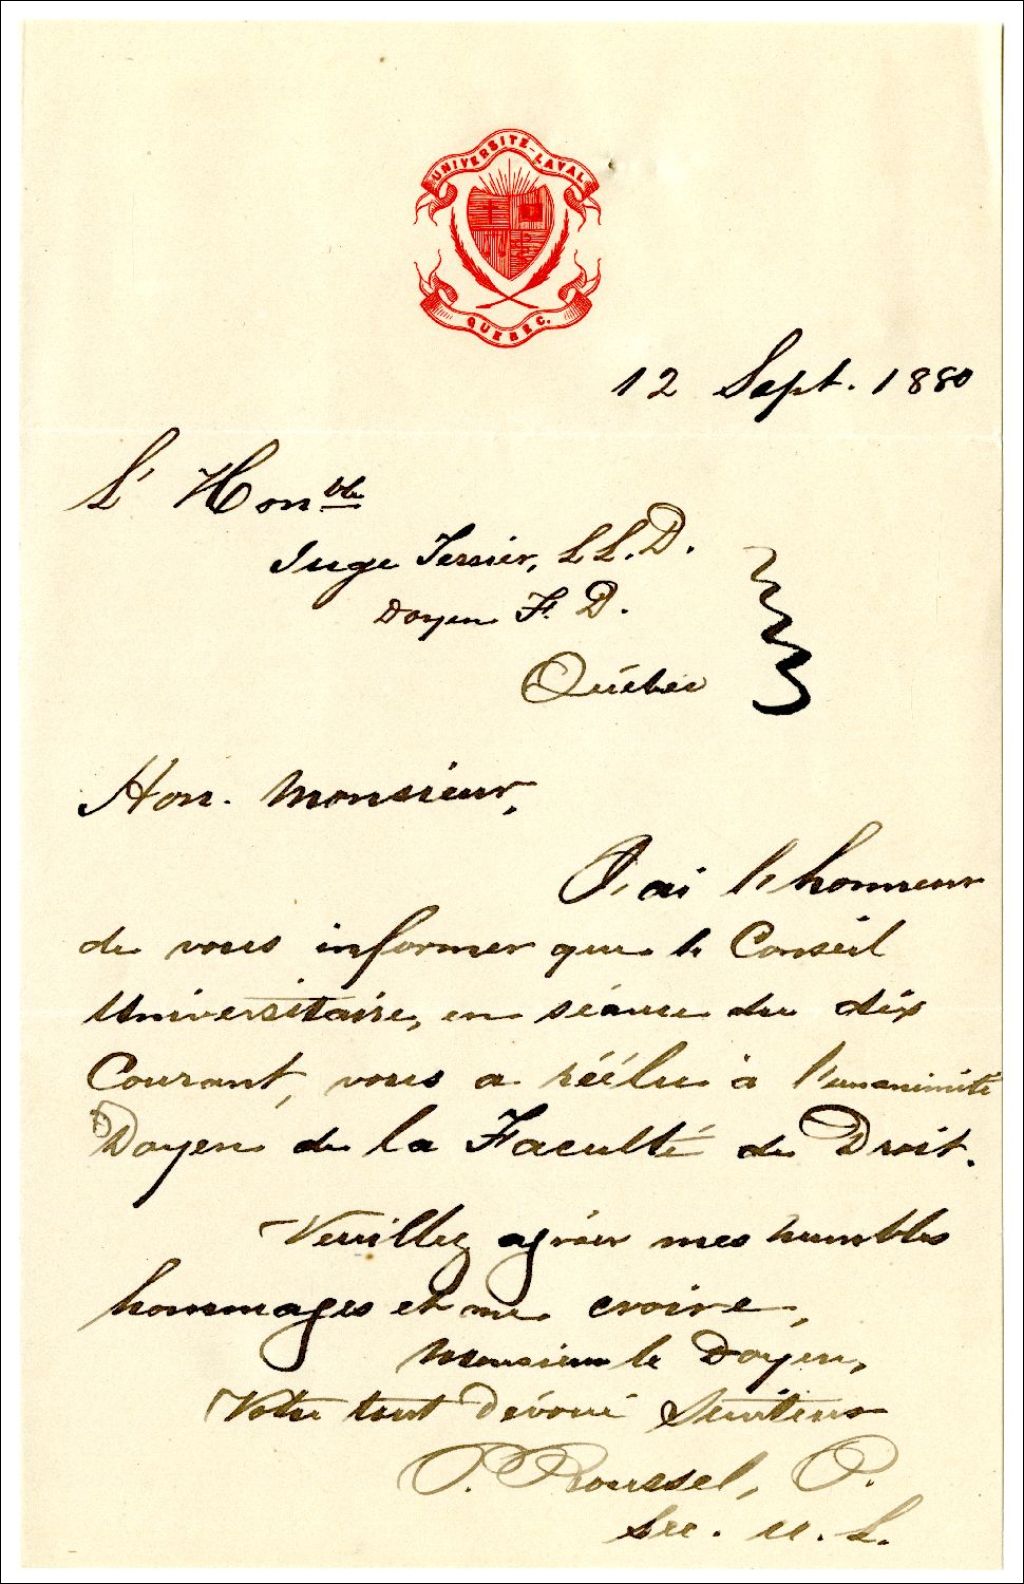 UNIVERSITÉ-LAVAL
QUÉBEC.
12 Sept. 1880
L'Honble
Juge Tessier, LL.D.
Doyen F. D.
Québec
Hon. Monsieur,
J'ai l'honneur
de vous informer que le Conseil
Universitaire, en séance du dix
Courant, vous a réélu à l'unanimité
Doyen de la Faculté de Droit.
Veuillez agréer mes humbles
hommages et me croire,
Monsieur le Doyen,
Votre tout Dévoué Serviteur
P. Roussel, P.
Sec. U. L.